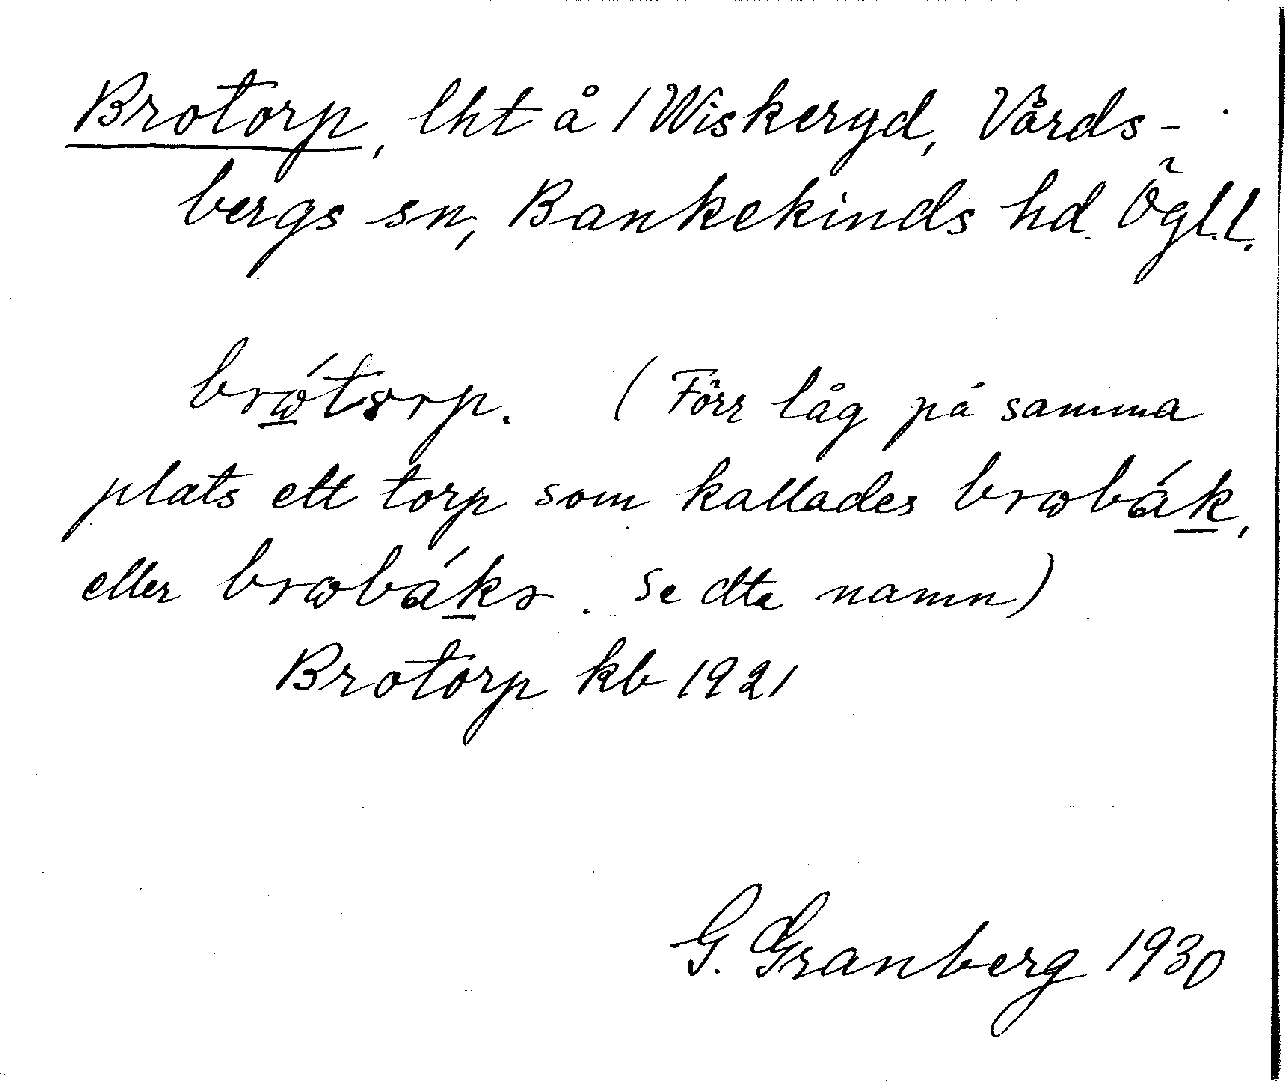 Brotorp, lht å 1 Wiskeryd, Vårds-
bergs sn, Bankekinds hd. Ögl. l.
brώtɵrp. (Förr låg på samma
plats ett torp som kallades brωbák,
eller brωbákɘ. Se dta namn)
Brotorp kb 1921
G. Granberg 1930